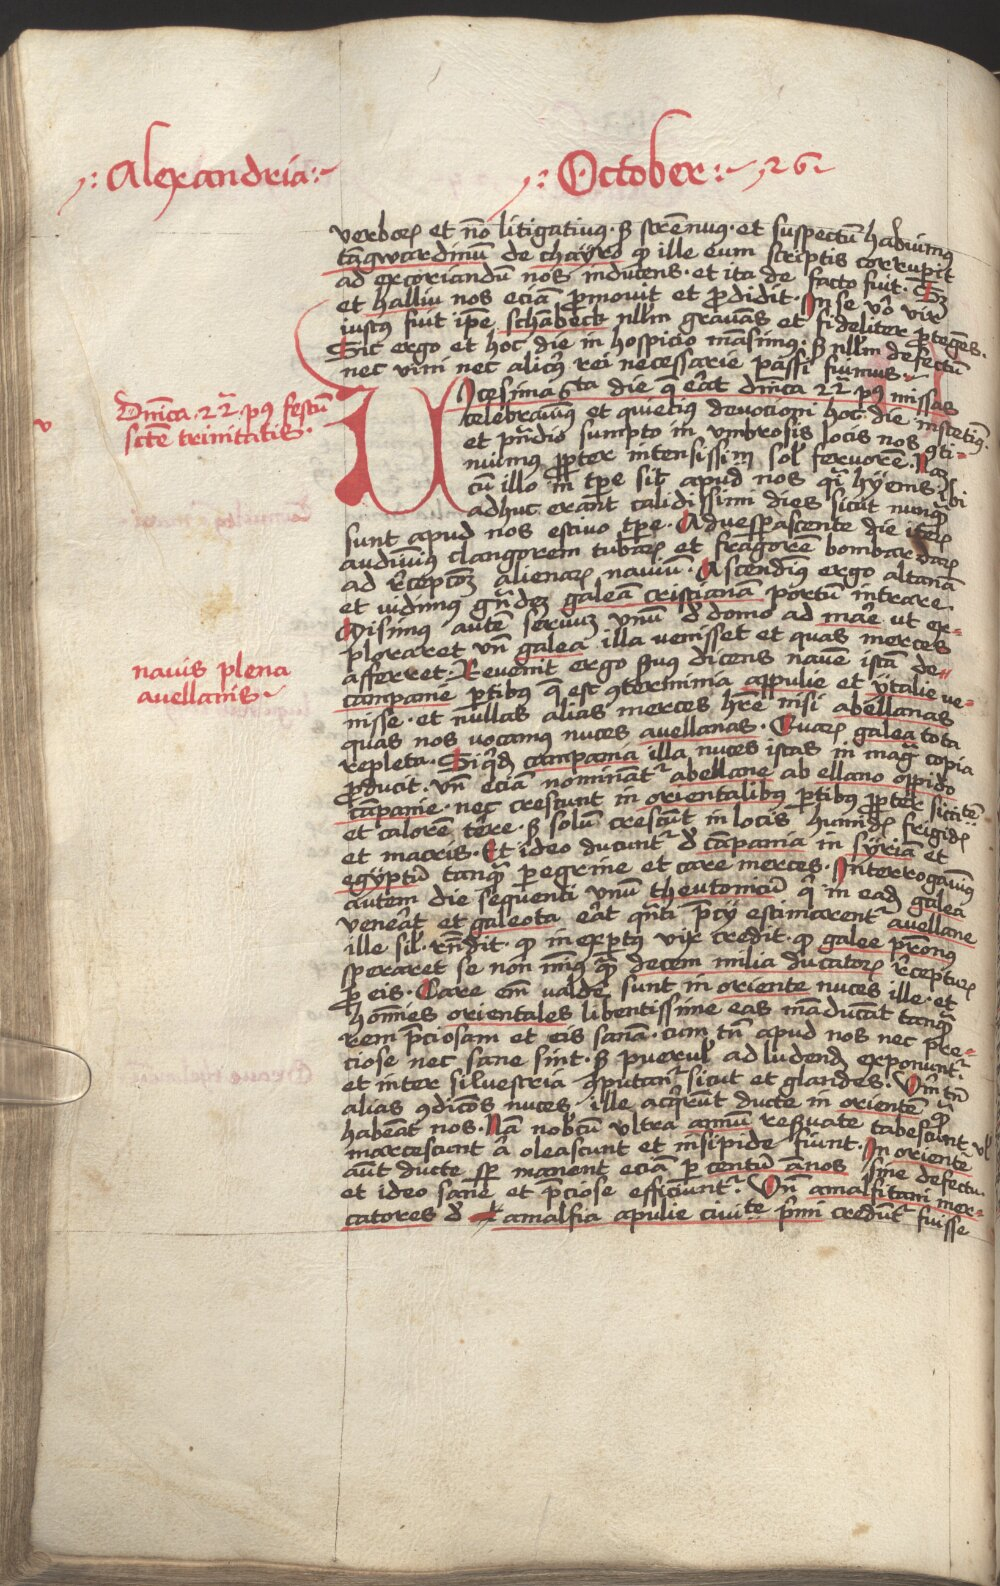 Alexandria
October 26
verborum et non litigativus · sed strennuus · et suspectum habuimus
tanguardinum de chayro quod ille eum scriptis corruperit
ad excoriandum nos inducens · et ita de facto fuit ·
et halliu nos eciam promovit et prodidit · In se vero vir
iustus fuit ipse schambeck nullum gravans et fideliter protegens ·
Sic ergo et hoc die in hospicio mansimus · sed nullum defectum
nec vim nec alicuius rei necessarie passi fuimus ·
Dnica · 22 · post festum
scte trinitatis ·
v
Vicesima 6ta die que erat dominica 22 post missas
celebravimus et quietius devotioni hoc die insistentes
et prandio sumpto in umbrosis locis nos conti-
nuimus propter intensissimum solis fervorem · Nam
cum illo in tempore sit apud nos quasi hyems · ibi
adhuc erant calidissimi dies sicut nunquam
sunt apud nos estivo tempore · Advesperascente die iterum
audivimus clangorem tubarum et fragorem bombardarum
ad receptionem alienarum navium · Ascendimus ergo altanam
et vidimus grandem galeam cristianam portum intrare ·
Misimus autem servum unum de domo ad mare ut ex-
ploraret unde galea illa venisset et quas merces
afferret · Revenit ergo servus dicens navem istam de
navis plena
avellanis
campanie partibus que est conterminia appulie et ytalie ve-
nisse · et nullas alias merces habere nisi abellanas
quas nos vocamus nuces avellanas · Quarum galea tota
repleta · Siquidem campania illa nuces istas in magna copia
producit · unde eciam nominantur abellane ab ellano oppido
campanie · nec crescunt in orientalibus partibus propter siccitatem
et calorem terre · sed solum crescunt in locis humidis frigidis
et macris · Et ideo ducuntur de campania in syriam et
egyptum tanquam peregrine et care merces · Interrogavimus
autem die sequenti unum theutonicum qui in eadem galea
venerat et galeota erat quanti precii estimarentur avellane
ille simul respondit · quod inexpertus vix credit · quod galee patronus
speraret se non minus quam decem milia ducatorum recepturum
pro eis · Care enim valde sunt in oriente nuces ille · et
homines orientales libentissime eas manducant tanquam
rem preciosam et eis sanam · cum tamen apud nos nec pre-
ciose nec sane sint · sed puerulis ad ludendum exponuntur
et inter silvestria computantur sicut et glandes ·
alias condiciones nuces ille acquirunt ducte in orientem quam
habeant nos · Nam nobiscum ultra annum reservate tabescunt vel
marcescunt aut oleascunt et insipide fiunt · In oriente
autem ducte semper manent eciam per centum annos sine defectu
et ideo sane et preciose efficiuntur · Unde amalfitani mer-
catores de amalfia apulie civitate primi creduntur fuisse